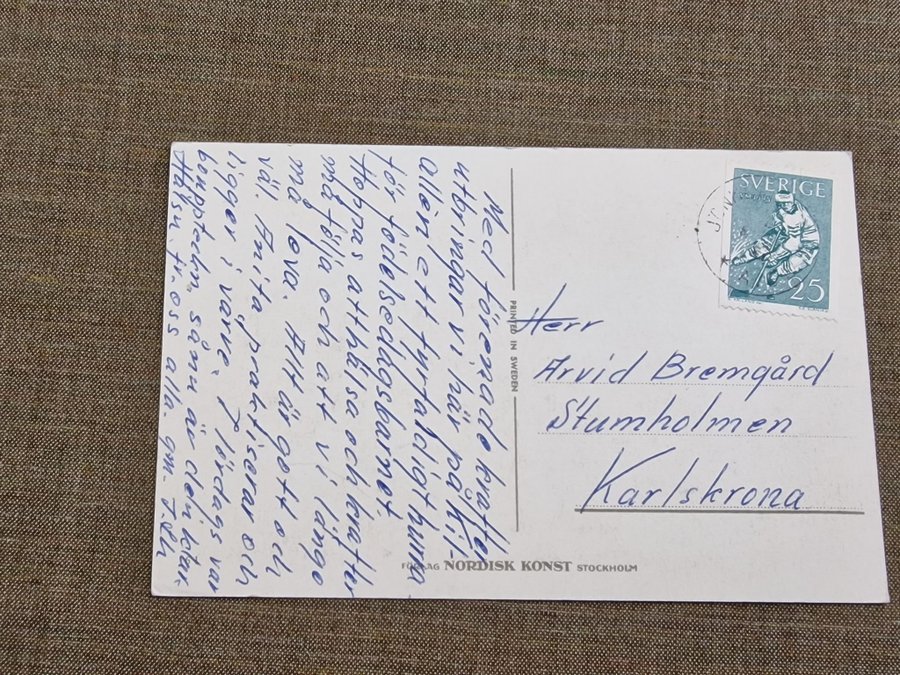 Med förenade krafter
utbringar vi här på Kil-
allén ett fyrfaldigt hurra
för födelsedagsbarnet
Hoppas att hälsa och krafter
må följa och att vi länge
må leva. Allt är gott och
väl. Anita praktiserar och
ligger i varv. I lördags var
sånn är den
Hälsn. fr. oss alla. gm.
SVERIGE
25
Herr
Arvid Bremgård
Stumholmen
Karlskrona
PRINTED IN SWEDEN
FÖRLAG NORDISK KONST STOCKHOLM